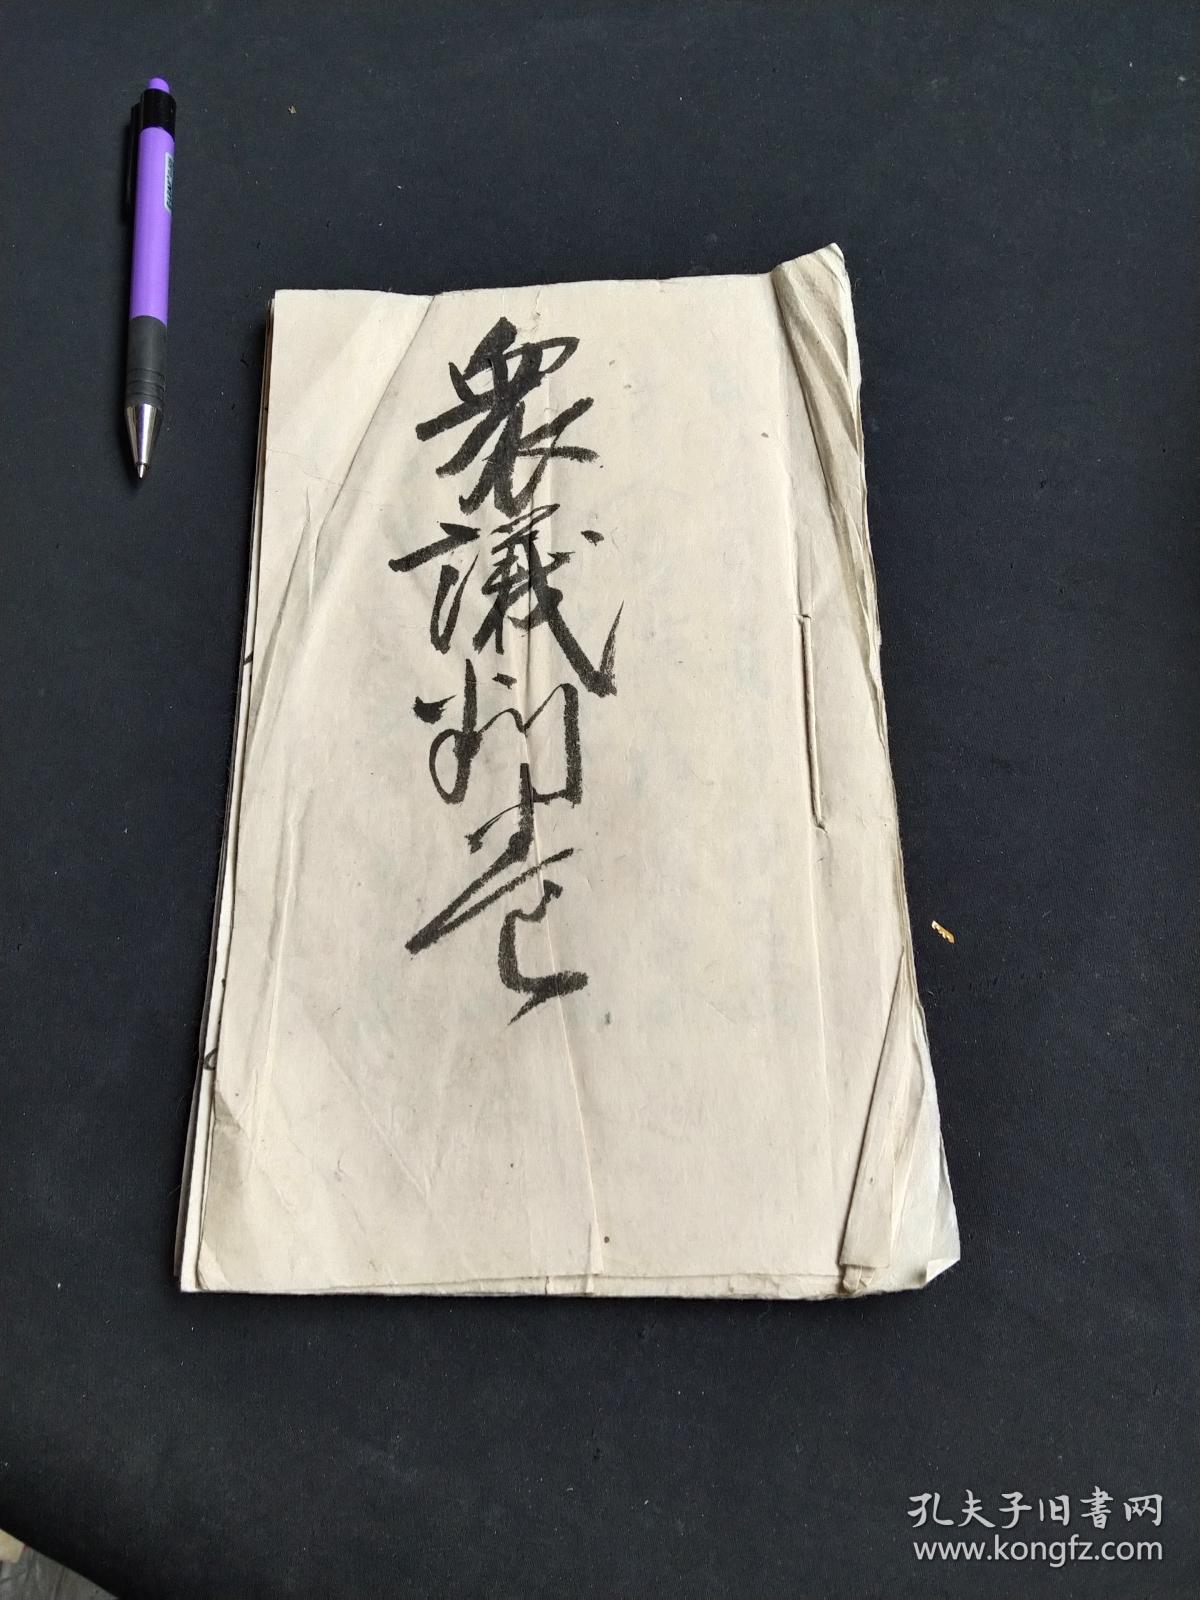 衆議判巻
孔夫子旧書网
www.kongfz.com